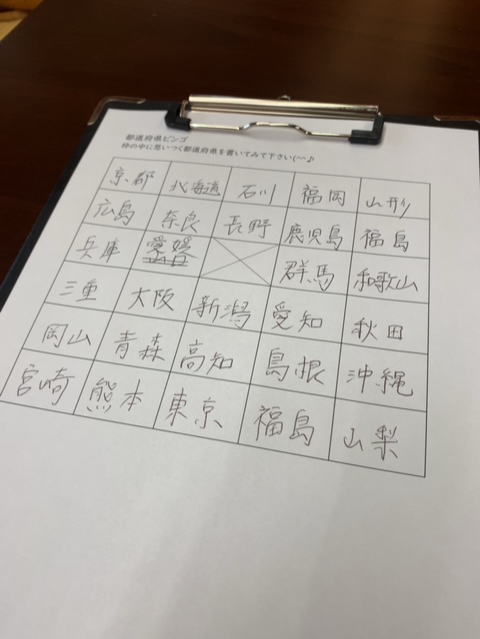 都道府県ビンゴ
枠の中に思いつく都道府県を書いてみて下さい(^-^♪
京都 北海道 石川 福岡 山形
広島 奈良 長野 鹿児島 福島
兵庫 愛媛 群馬 和歌山
三重 大阪 新潟 愛知 秋田
岡山 青森 高知 島根 沖縄
宮崎 熊本 東京 福島 山梨